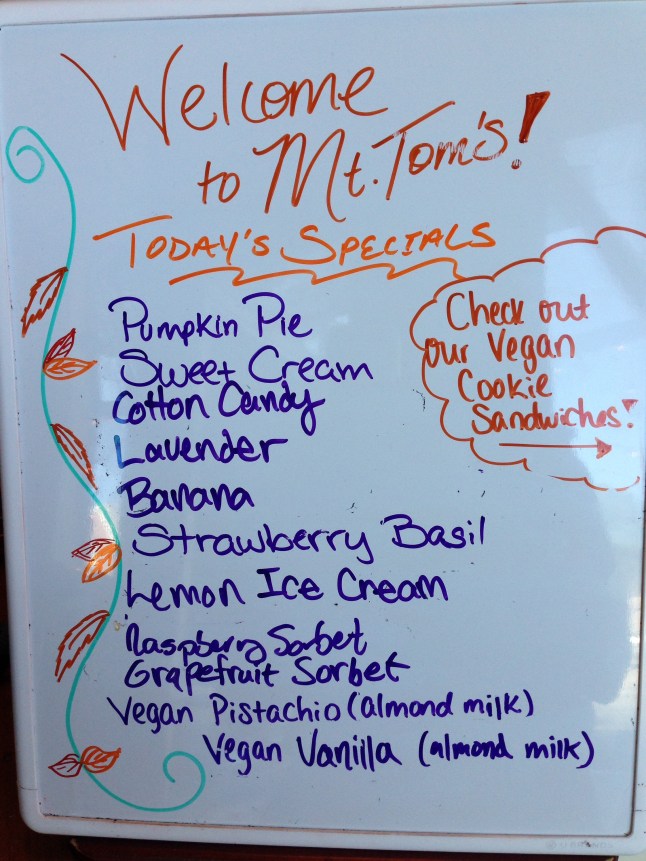 Welcome
to Mt. Tom's!
TODAY'S SPECIALS
Check out
our Vegan
Cookie
Sandwiches!
Pumpkin Pie
Sweet Cream
Cotton Candy
Lavender
Banana
Strawberry Basil
Lemon Ice Cream
Raspberry Sorbet
Grapefruit Sorbet
Vegan Pistachio (almond milk)
Vegan Vanilla (almond milk)